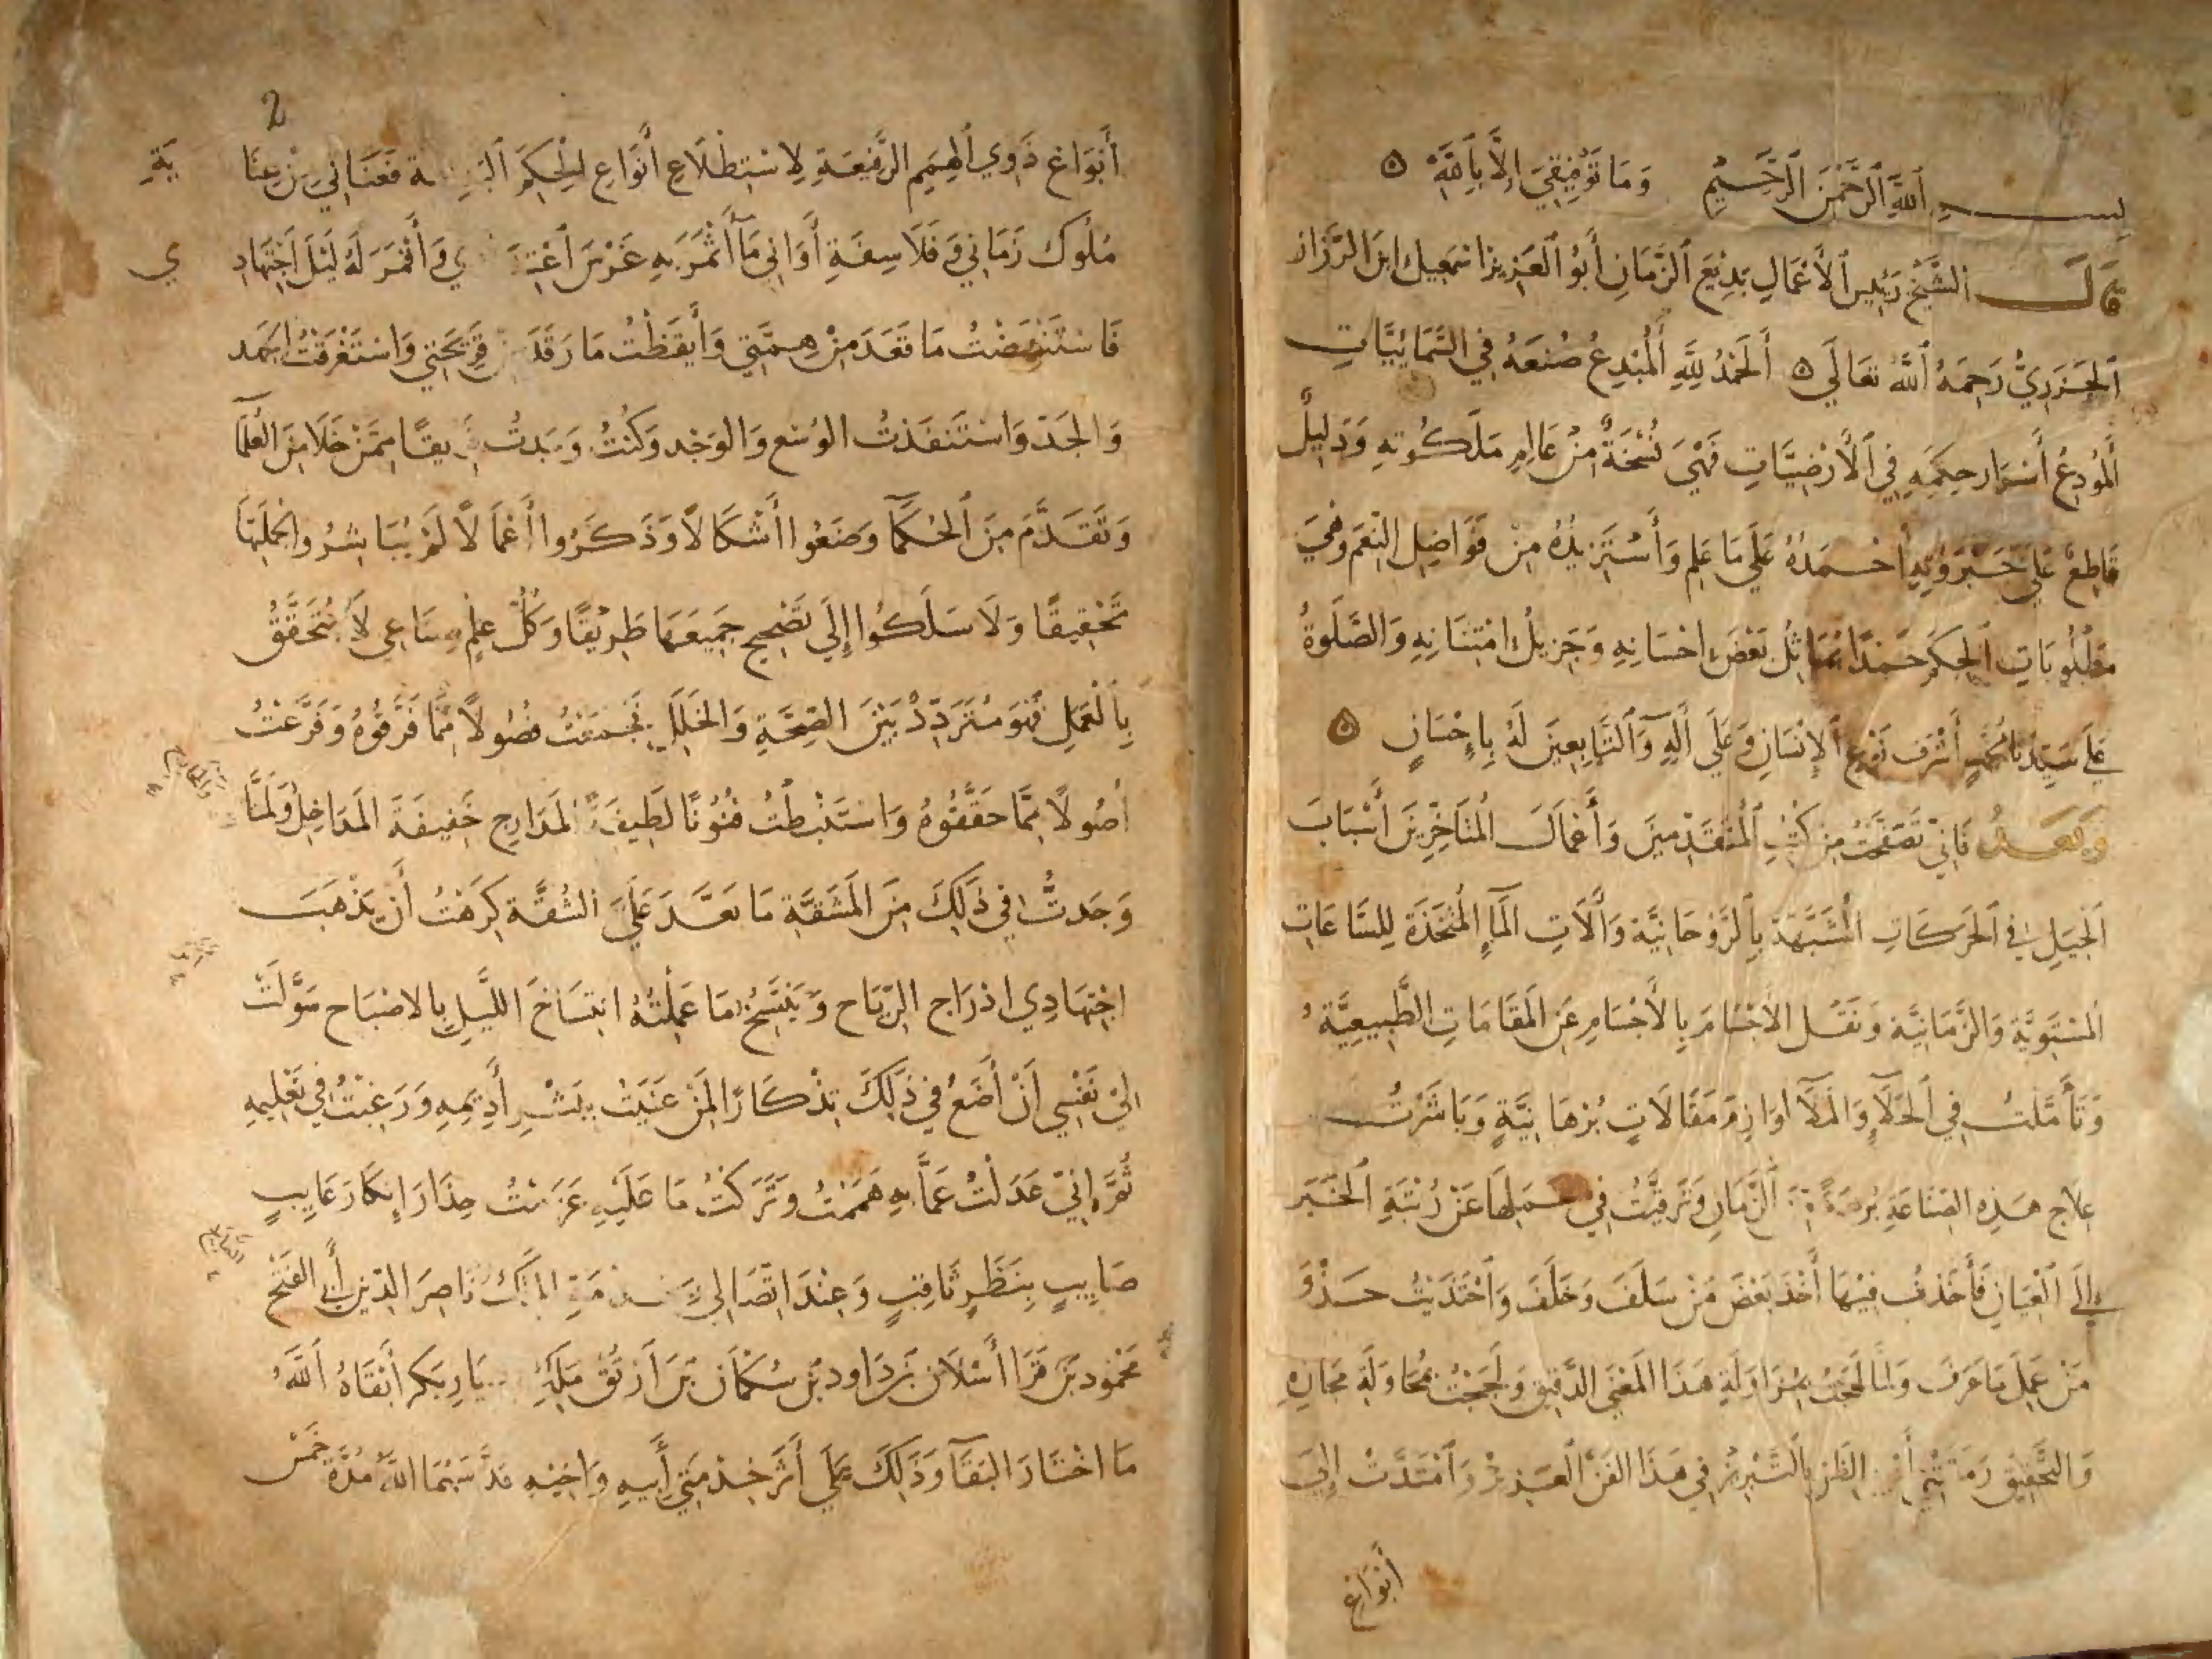 بسم الله الرحمن الرحيم وما توفيقي إلا بالله ه
قال الشيخ رئيس الأعمال بديع الزمان أبو العز بن اسمعيل ابن الرزاز
الجزري رحمه الله تعالى ه الحمد لله المبدع صنعه في السمائيات
المودع أسرار حكمه في الأرضيات فهي نسخة من عالم ملكوته ودليل
قاطع على جبروته احمده على ما علم وأستزيده من فواضل النعم وهي
مطلوبات الحكم حمدا يماثل بعض احسانه وجزيل امتنانه والصلوة
على سيدنا محمد أشرف نوع الإنسان وعلى آله والتابعين له بإحسان ه
وبعد فاني تصفحت من كتب المتقدمين وأعمال المتأخرين أسباب
الحيل في الحركات المشبهة بالروحانية وآلات الماء المتخذة للساعات
المستوية والزمانية ونقل الأجسام بالأجسام عن المقامات الطبيعية
وتأملت في الخلاء والملاء لوازم مقالات برهانية وباشرت
علاج هذه الصناعة برهة من الزمان وترقيت في عملها عن رتبة الخبر
إلى العيان فأخذت فيها أخذ بعض من سلف وخلف واحتذيت حذو
من عمل ما عرف ولما لهجت بمزاولة هذا المعنى الدقيق ولججت محاولة مجازه
والتحقيق رمقتني أعين الظن بالتبريز في هذا الفن العزيز وامتدت إلي
أبواع
2
أبواع ذوي الهمم الرفيعة لاستطلاع أنواع الحكم البديعة فعناني من عنا
ية
ملوك زماني وفلاسفة أواني ما أثمر به غرس اعتزا ي وأقمر له ليل اجتهاد
ي
فاستنهضت ما قعد من همتي وأيقظت ما رقد من قريحتي واستغرقت الجهد
والجد واستنفذت الوسع والوجد وكنت وجدت فريقا ممن خلا من العلما
وتقدم من الحكما وضعوا أشكالا وذكروا أعمالا لم يباشروا لجملتها
تحقيقا ولا سلكوا إلى تصحيح جميعها طريقا وكل علم صناعي لا يتحقق
بالعمل فهو متردد بين الصحة والخلل فجمعت فصولا مما فرقوه وفرعت
أصولا مما حققوه واستنبطت فنونا لطيفة المدارج خفيفة المداخل ولما
وجدت في ذلك من المشقة ما بعد علي الشقة كرهت أن يذهب
اجتهادي ادراج الرياح وينتسخ ما عملته انتساخ الليل بالاصباح سولت
الي نفسي أن أضع في ذلك تذكارا لمن عنيت بنشر أديمه ورغبت في تعليمه
ثم إني عدلت عما به هممت وتركت ما عليه عزمت حذار إنكار عايب
صايب بنظر ثاقب وعند اتصالي بخدمة الملك ناصر الدين أبي الفتح
محمود بن قرا أسلان بن داود بن سكمان بن أرتق ملك ديار بكر أبقاه الله
ما اختار البقا وذلك على أثر خدمتي أبيه واخيه قدسهما الله مدة خمس